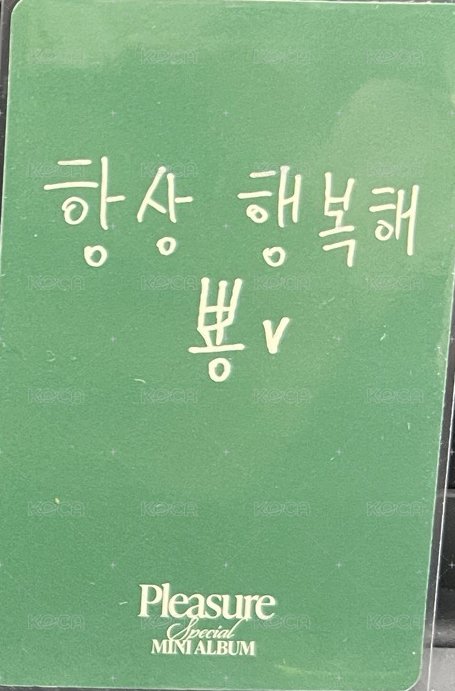 항상 행복해
뿅 v
Pleasure
Special
MINI ALBUM